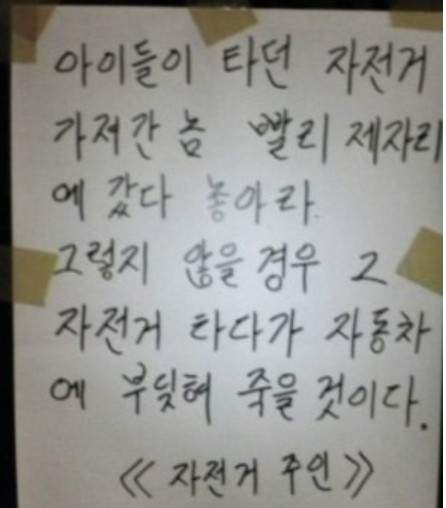 아이들이 타던 자전거
가져간 놈 빨리 제자리
에 갔다 놓아라.
그렇지 않을 경우 그
자전거 타다가 자동차
에 부딪혀 죽을 것이다.
《 자전거 주인 》